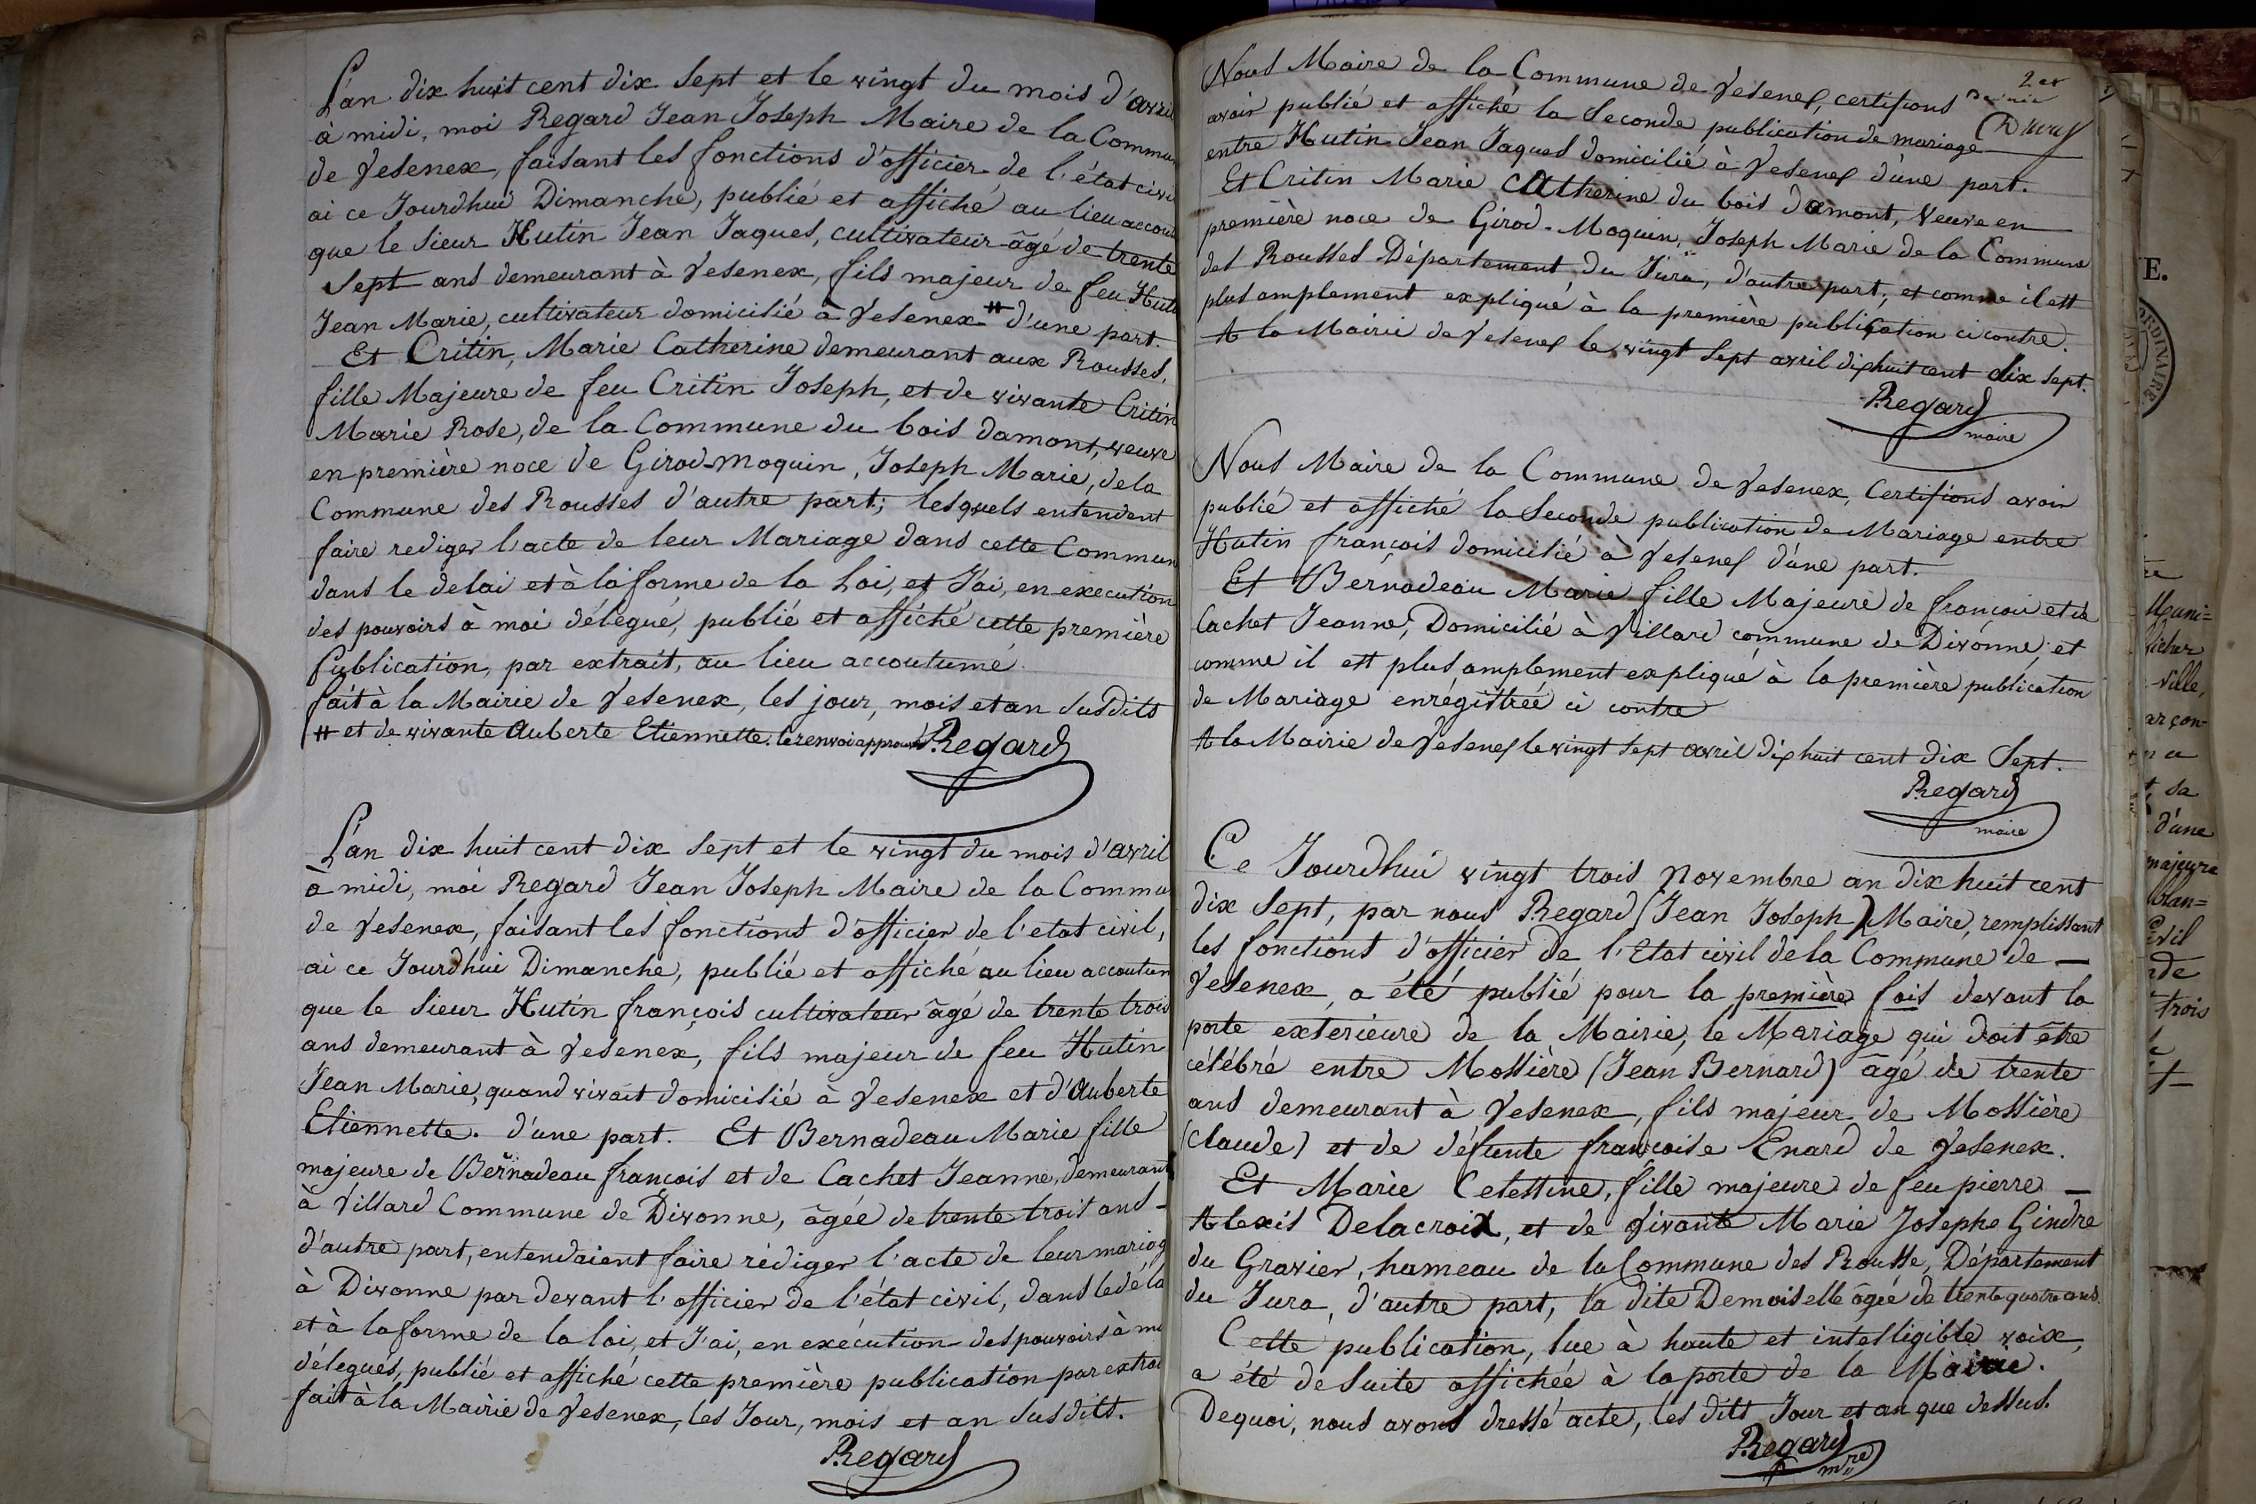 L'an dix huit cent dix sept et le vingt du mois d'avril
à midi, moi Regard Jean Joseph Maire de la Commun
de Vesenex, faisant les fonctions d'officier de l'état civi
ai ce Jourdhui Dimanche, publié et affiché au lieu accout
que le Sieur Hutin Jean Jaques, cultivateur âgé de trente
Sept ans demeurant à Vesenex, fils majeur de feu Huti
Jean Marie, cultivateur domicilié à Vesenex # d'une part.
Et Critin, Marie Catherine demeurant aux Rousses,
fille Majeure de feu Critin Joseph, et de vivante Critin
Marie Rose, de la Commune du bois damont, veuve
en première noce de Girod-Moquin, Joseph Marie, de la
Commune des Rousses d'autre part; lesquels entendent
faire rediger l'acte de leur Mariage dans cette Commun
dans le delai et à la forme de la Loi, et J'ai, en execution
des pouvoirs à moi délégué, publié et affiché cette première
Publication, par extrait, au lieu accoutumé.
fait à la Mairie de Vesenex, les jour, mois et an Susdits
# et de vivante Auberte Etiennette. le renvoi approuvé Regard
L'an dix huit cent dix Sept et le vingt du mois d'avril
à midi, moi Regard Jean Joseph Maire de la Commu
de Vesenex, faisant les fonctions d'officier de l'etat civil,
ai ce Jourdhui Dimanche, publié et affiché au lieu accoutum
que le Sieur Hutin françois cultivateur âgé de trente trois
ans demeurant à Vesenex, fils majeur de feu Hutin
Jean Marie, quand vivait domicilié à Vesenex et d'Auberte
Etiennette. d'une part. Et Bernadeau Marie fille
majeure de Bernadeau françois et de Cachet Jeanne, demeurant
à Villard Commune de Divonne, âgée de trente trois ans
d'autre part, entendaient faire rédiger l'acte de leur mariag
à Divonne par devant l'officier de l'état civil, dans le déla
et à la forme de la loi, et J'ai, en exécution des pouvoirs à m
délegués, publié et affiché cette première publication par extrai
fait à la Mairie de Vesenex, les Jour, mois et an Susdits.
Regard
2er
Nous Maire de la Commune de Vesenex, certifions
avoir publié et affiché la Seconde publication de mariage
entre Hutin Jean Jaques domicilié à Vesenex d'une part.
Et Critin Marie Catherine du bois damont, Veuve en
première noce de Girod-Moquin, Joseph Marie de la Commune
des Rousses Département du Jura, d'autre part, et comme il est
plus amplement expliqué à la première publication ci contre.
A la Mairie de Vesenex le vingt Sept avril dix huit cent dix Sept.
Regard
maire
Nous Maire de la Commune de Vesenex, Certifions avoir
publié et affiché la Seconde publication de Mariage entre
Hutin françois domicilié à Vesenex d'une part.
Et Bernadeau Marie fille Majeure de françois et de
Cachet Jeanne, Domicilié à Villard commune de Divonne, et
comme il est plus amplement expliqué à la première publication
de Mariage enrégistrée ci contre
A la Mairie de Vesenex le vingt Sept avril dix huit cent dix Sept.
Regard
maire
Ce Jourdhui vingt trois Novembre an dix huit cent
dix Sept, par nous Regard (Jean Joseph) Maire, remplissant
les fonctions d'officier de l'Etat civil de la Commune de
Vesenex, a été publié pour la première fois devant la
porte exterieure de la Mairie, le Mariage qui doit être
célébré entre Mossière (Jean Bernard) âgé de trente
ans demeurant à Vesenex, fils majeur de Mossière
(Claude) et de défunte françoise Enard de Vesenex.
Et Marie Celestine, fille majeure de feu pierre
Alexis Delacroix, et de vivante Marie Josephe Gindre
du Gravier, hameau de la Commune des Rousse, Département
du Jura, d'autre part, la dite Demoiselle âgée de trente quatre ans.
Cette publication, lue à haute et intelligible voix,
a été de Suite affichée à la porte de la Mairie.
Dequoi, nous avons dressé acte, les dits Jour et an que dessus.
Regard
mre
E.
ORDINAIRE
Muni=
ville,
d'une
majeure
trois